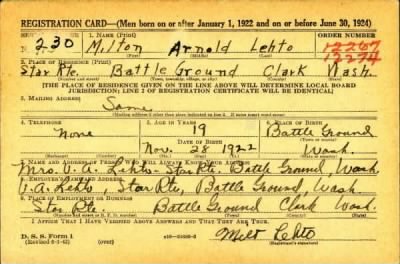 REGISTRATION CARD—(Men born on or after January 1, 1922 and on or before June 30, 1924)
SERIAL NUMBER 1. NAME (Print) ORDER NUMBER
N 230 Milton Arnold Lehto 12267
12274
2. PLACE OF RESIDENCE (Print)
Star Rte. Battle Ground Clark Wash.
[THE PLACE OF RESIDENCE GIVEN ON THE LINE ABOVE WILL DETERMINE LOCAL BOARD
JURISDICTION; LINE 2 OF REGISTRATION CERTIFICATE WILL BE IDENTICAL]
3. MAILING ADDRESS
Same
4. TELEPHONE 5. AGE IN YEARS 6. PLACE OF BIRTH
None 19 Battle Ground
DATE OF BIRTH
Nov. 28 1922 Wash.
7. NAME AND ADDRESS OF PERSON WHO WILL ALWAYS KNOW YOUR ADDRESS
Mrs. V. A. Lehto Star Rte. Battle Ground, Wash
8. EMPLOYER'S NAME AND ADDRESS
V. A. Lehto, Star Rte, Battle Ground, Wash.
9. PLACE OF EMPLOYMENT OR BUSINESS
Star Rte. Battle Ground Clark Wash.
I AFFIRM THAT I HAVE VERIFIED ABOVE ANSWERS AND THAT THEY ARE TRUE.
D. S. S. Form 1
Milt Lehto